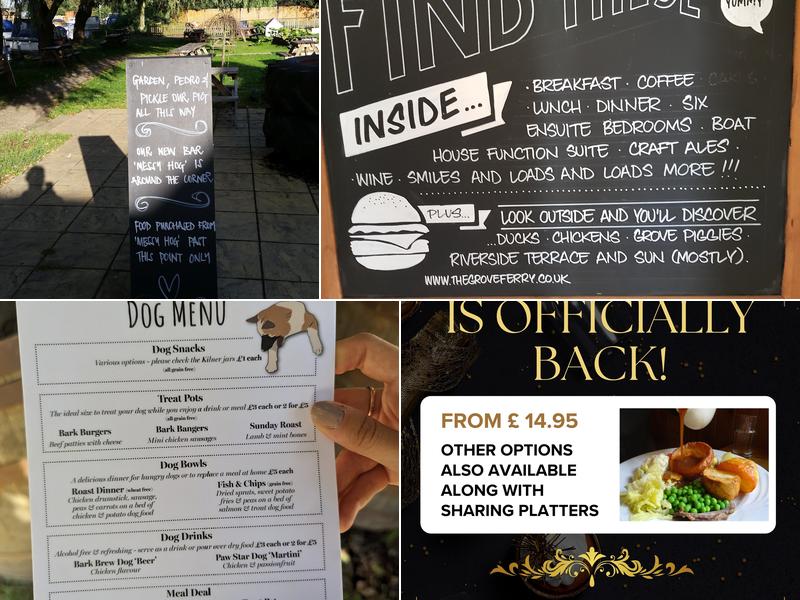 GARDEN, PEDRO &
PICKLE OUR PIGS
ALL THIS WAY
OUR NEW BAR
'MESSY HOG' IS
AROUND THE CORNER
FOOD PURCHASED FROM
'MESSY HOG' PAST
THIS POINT ONLY
FIND THESE
YUMMY
INSIDE...
· BREAKFAST · COFFEE · CAKES
· LUNCH · DINNER · SIX
ENSUITE BEDROOMS · BOAT
HOUSE FUNCTION SUITE · CRAFT ALES ·
· WINE · SMILES AND LOADS AND LOADS MORE !!!
PLUS...
LOOK OUTSIDE AND YOU'LL DISCOVER
...DUCKS · CHICKENS · GROVE PIGGIES ·
RIVERSIDE TERRACE AND SUN (MOSTLY).
WWW.THEGROVEFERRY.CO.UK
DOG MENU
Dog Snacks
Various options - please check the Kilner jars £1 each
(all grain free)
Treat Pots
The ideal size to treat your dog while you enjoy a drink or meal £3 each or 2 for £5
(all grain free)
Bark Burgers
Beef patties with cheese
Bark Bangers
Mini chicken sausages
Sunday Roast
Lamb & mint bones
Dog Bowls
A delicious dinner for hungry dogs or to replace a meal at home £5 each
Roast Dinner (wheat free)
Chicken drumstick, sausage,
peas & carrots on a bed of
chicken & potato dog food
Fish & Chips (grain free)
Dried sprats, sweet potato
fries & peas on a bed of
salmon & trout dog food
Dog Drinks
Alcohol free & refreshing - serve as a drink or pour over dry food £3 each or 2 for £5
Bark Brew Dog 'Beer'
Chicken flavour
Paw Star Dog 'Martini'
Chicken & passionfruit
Meal Deal
IS OFFICIALLY
BACK!
FROM £ 14.95
OTHER OPTIONS
ALSO AVAILABLE
ALONG WITH
SHARING PLATTERS